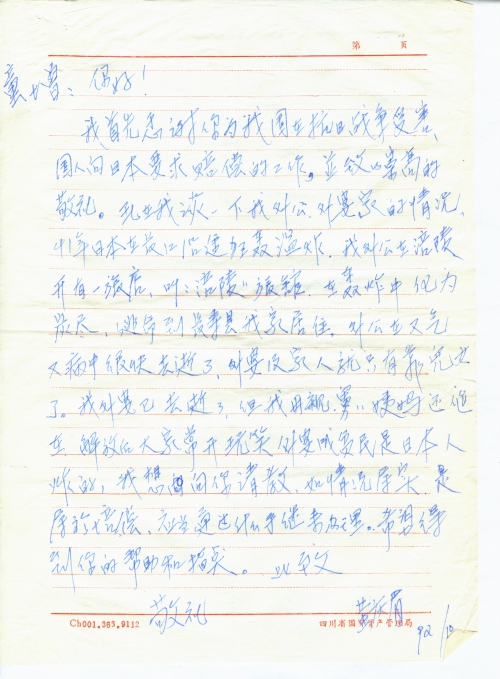 第 页
童女士:你好!
我首先感谢你为我国在抗日战争受害
国人向日本要求赔偿的工作,並致以崇高的
敬礼。现在我谈一下我外公、外婆家的情况,
41年日本在长江沿途狂轰滥炸,我外公在涪陵
开有一旅店,叫:"涪陵"旅馆,在轰炸中化为
灰尽,逃命到 县我家居住,外公在又气
又病中很快去逝了,外婆没家人就只有靠 
了。我外婆已去逝了,但我母親、舅、姨妈还健
在,解放后大家常开玩笑外婆成贫民是日本人
炸的,我想向你请教,如情况属实,是
属於赔偿,应当通过什么手继去办理。希望得
到你的帮助和指点。 此致
敬礼
92/10
Ch001.363.9112 四川省国有资产管理局